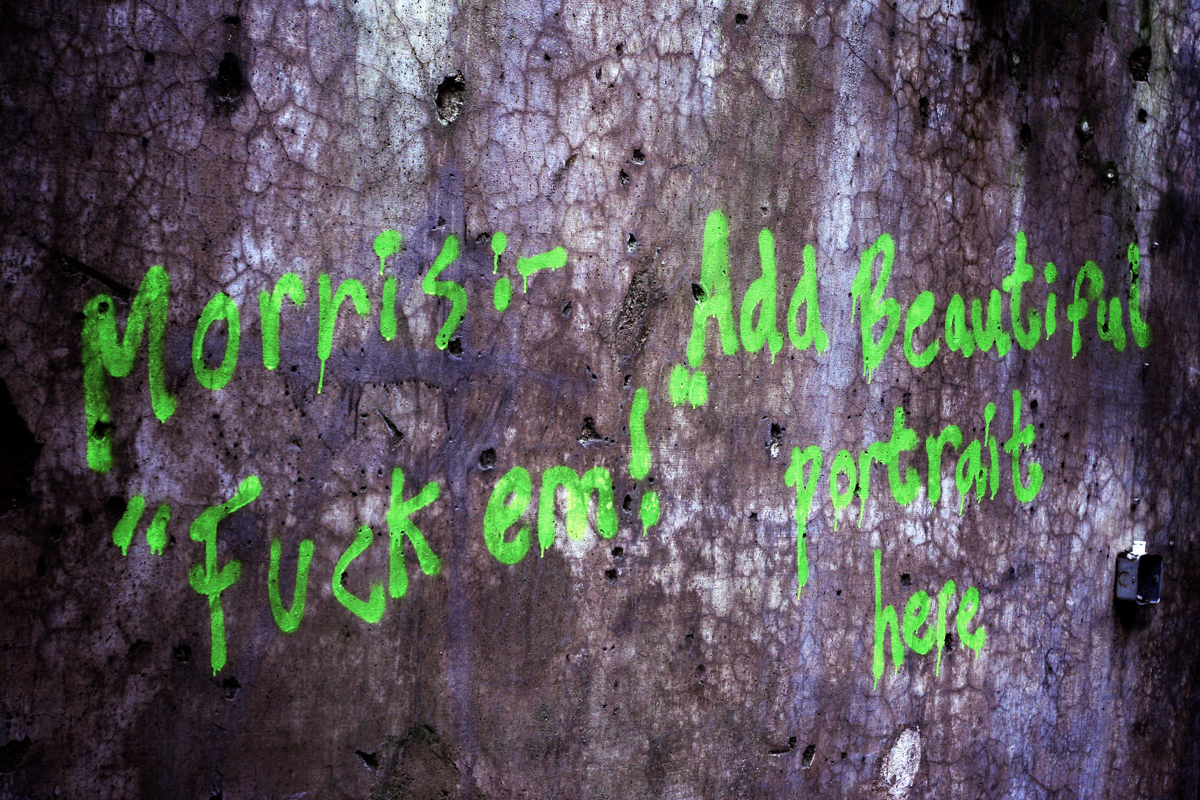 Morris:-
"Fuck em!"
Add Beautiful
portrait
here